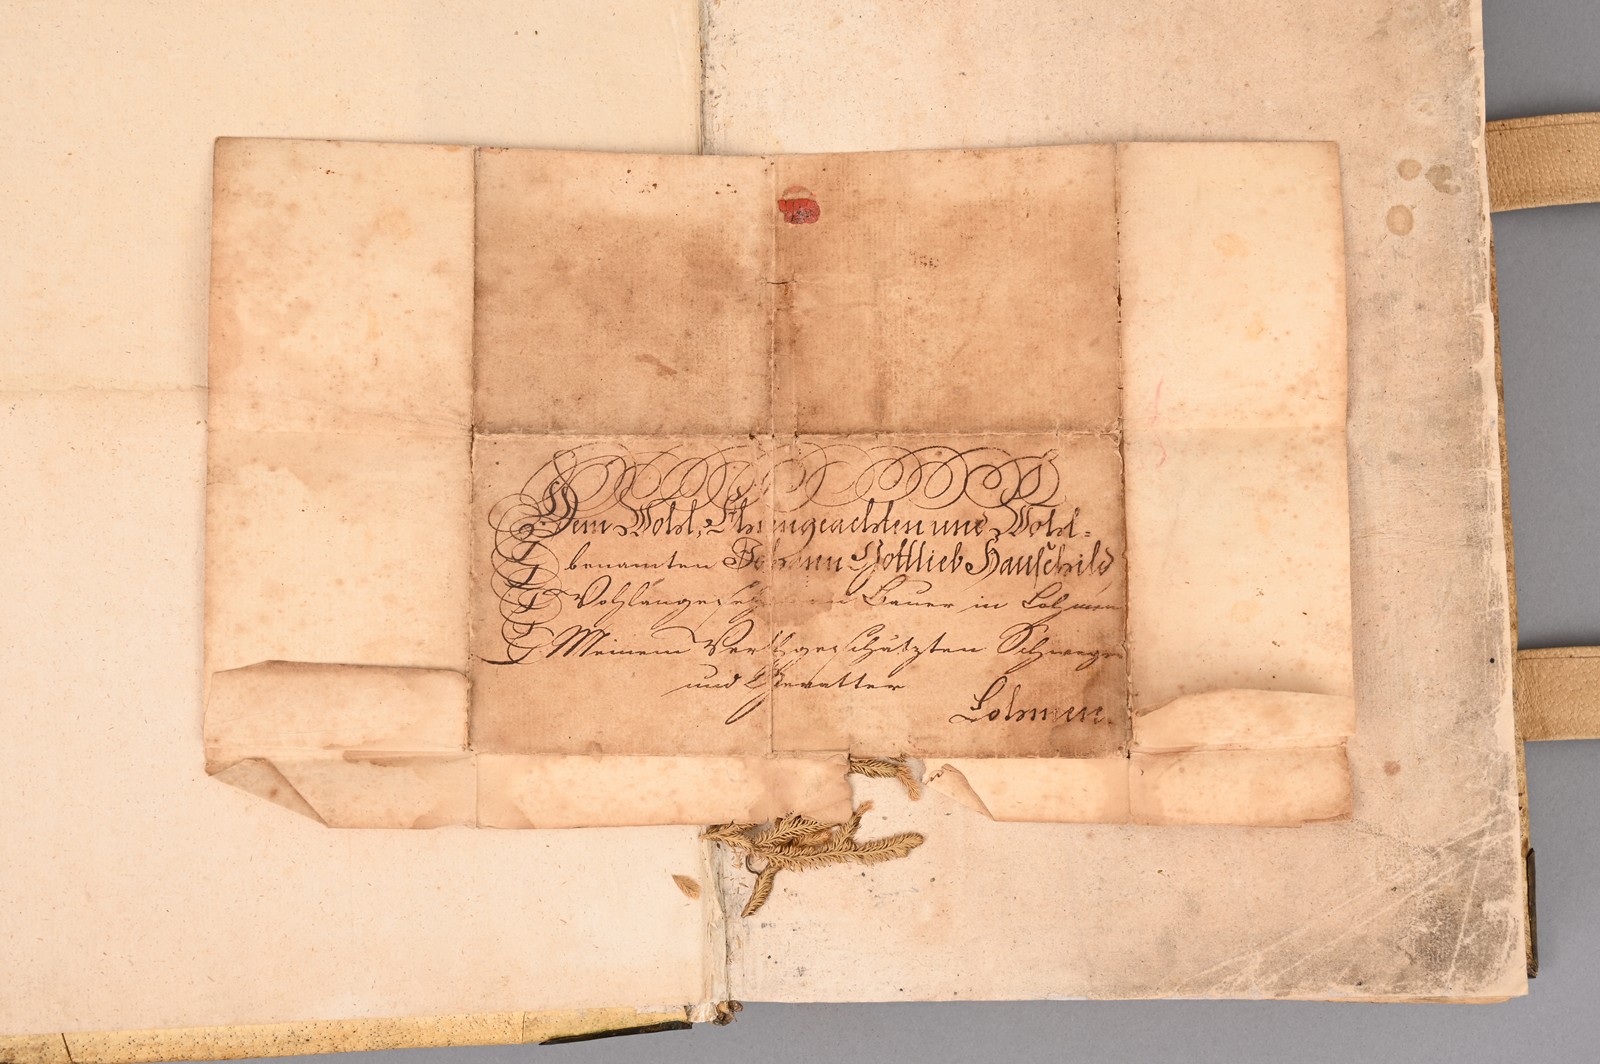 Dem Wohl, Ehrengeachten und Wohl-
benamten Johann Gottlieb Hauschild
Wohlangesehenen Bauer in Lohmen
Meinem Werthgeschätzten Schwager
und Gevatter
Lohmen.